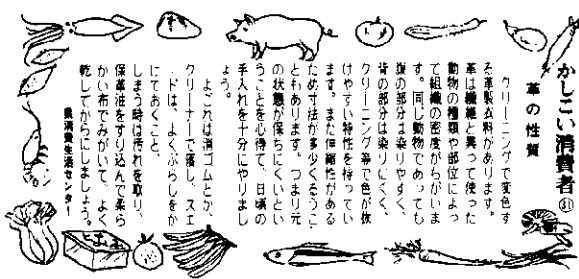 かしこい消費者㉛
革の性質
クリーニングで変色す
る革製衣料があります。
革は繊維と異って使った
動物の種類や部位によっ
て組織の密度がちがいま
す。同じ動物であっても
腹の部分は染りやすく、
背の部分は染りにくく、
クリーニング等で色が抜
けやすい特性を持ってい
ます。また伸縮性がある
ため寸法が多少くるうこ
ともあります。つまり元
の状態が保ちにくいとい
うことを心得て、日頃の
手入れを十分にやりまし
ょう。
よごれは消ゴムとか、
クリーナーで落し、スエ
ードは、よくぶらしをか
けておくこと、
しまう時は汚れを取り、
保革油をすり込んで柔ら
かい布でみがいて、よく
乾してからにしましょう。
県消費生活センター